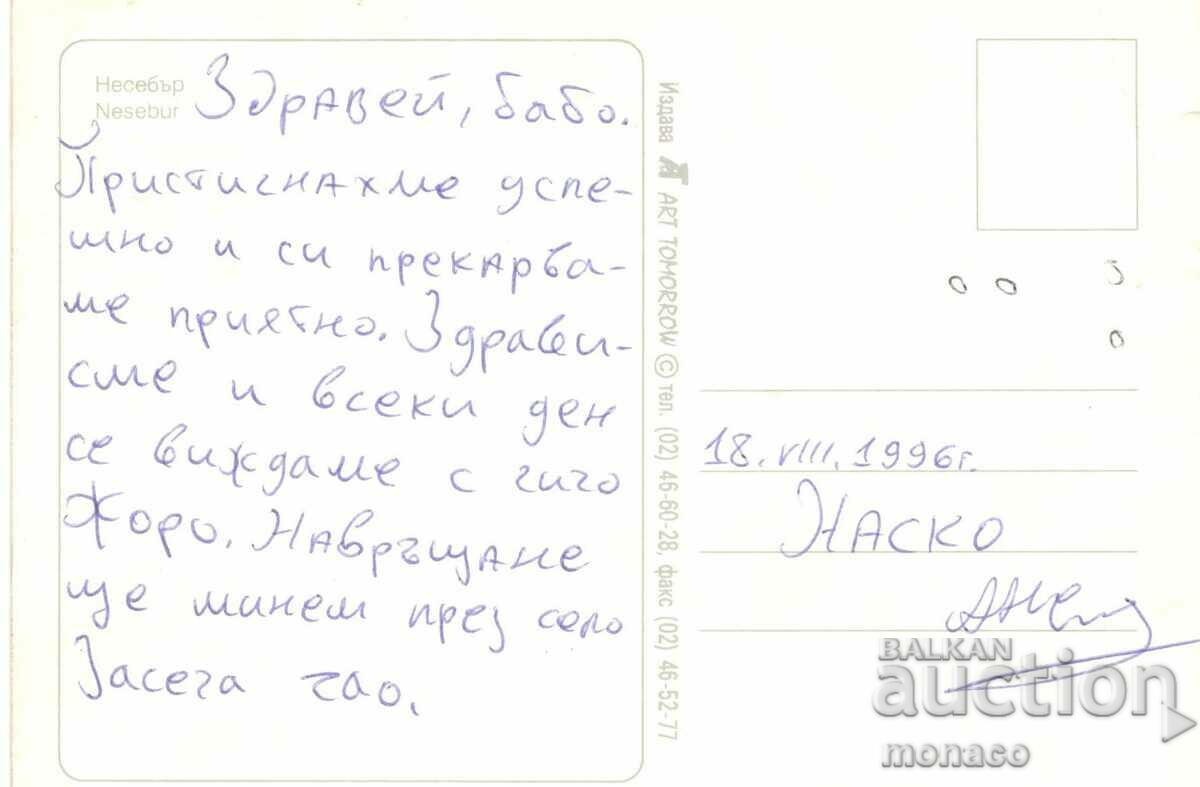 Несебър
Nesebur
Здравей, бабо.
Пристигнахме успе-
шно и си прекарва-
ме приятно. Здрави
сме и всеки ден
се виждаме с чичо
Жоро. Навръщане
ще минем през село
Засега чао.
Издава ART TOMORROW © тел. (02) 46-60-28, факс (02) 46-52-77
18.VIII.1996г.
НАСКО
BALKAN
auction
monaco